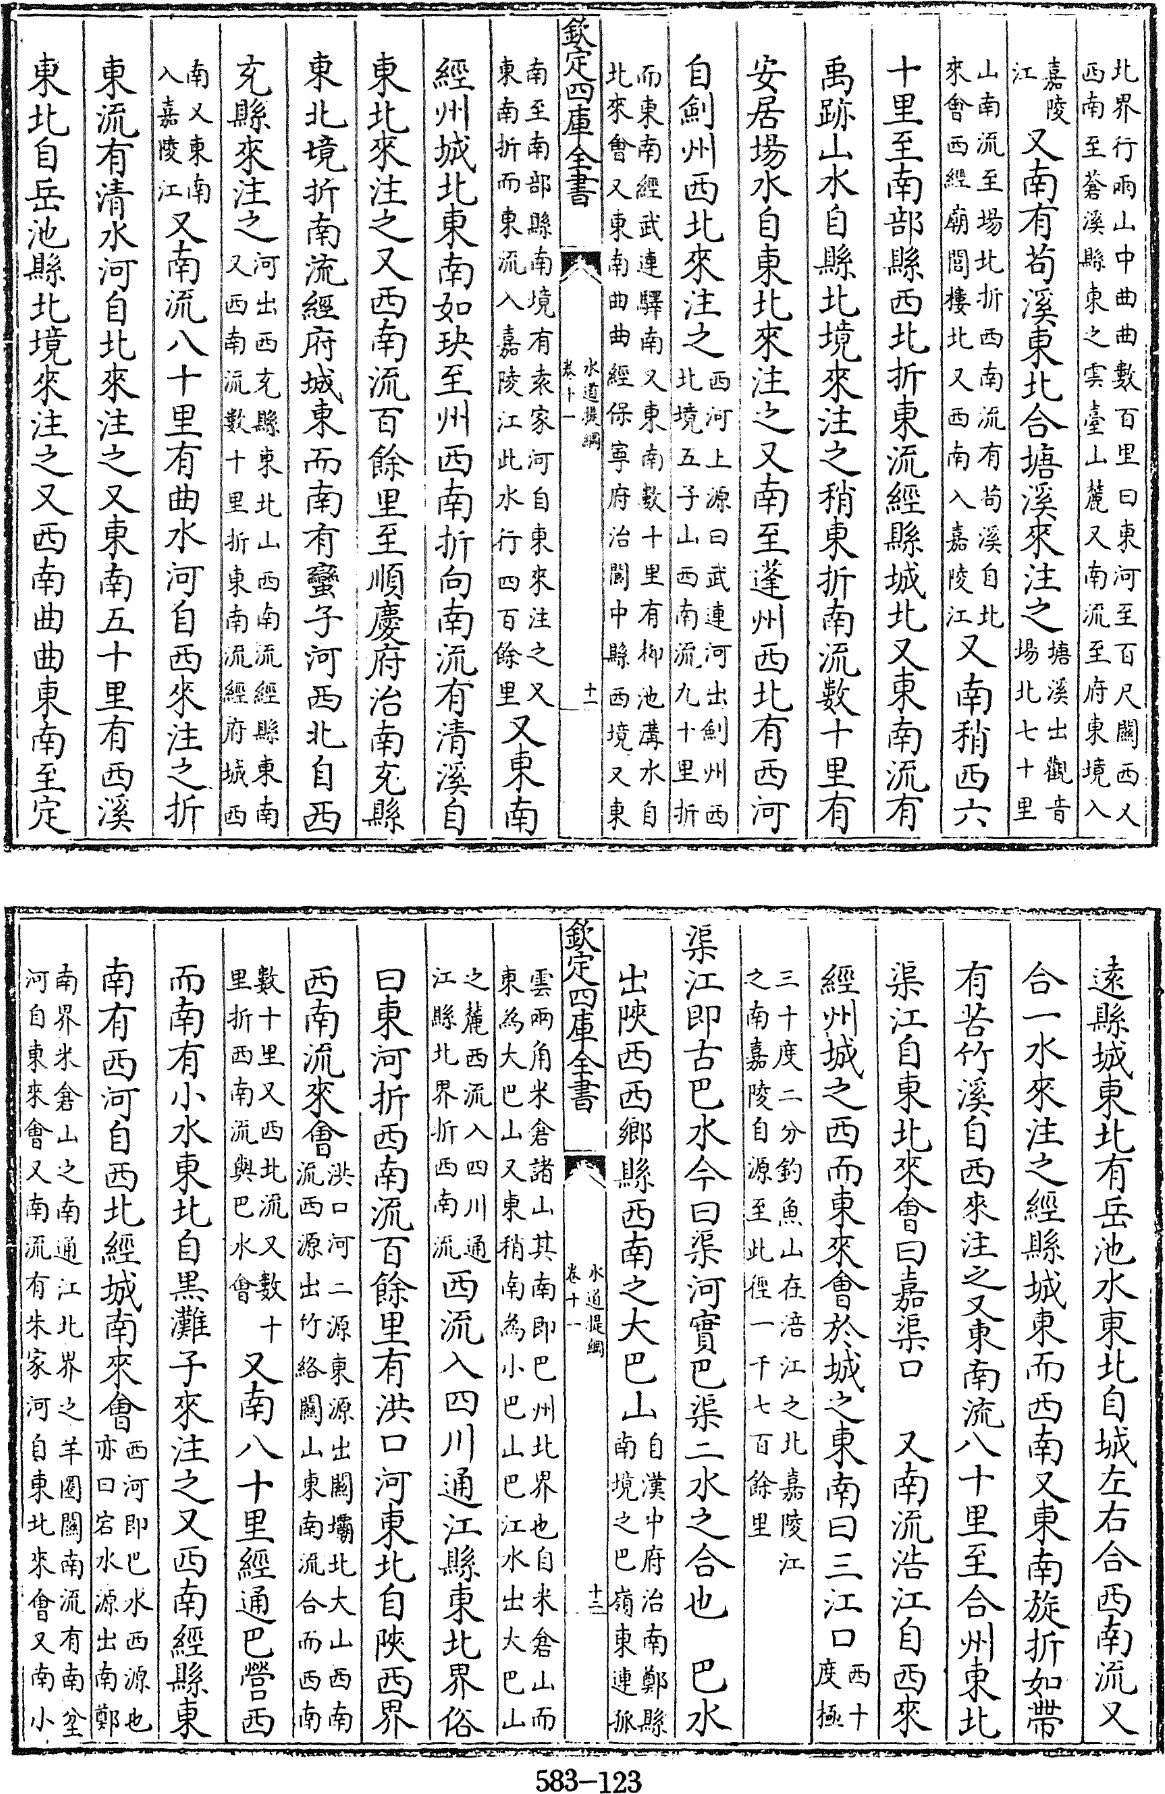 北界行兩山中曲曲數百里曰東河至百尺關西又
西南至蒼溪縣東之雲臺山麓又南流至府東境入
嘉陵江又南有苟溪東北合塘溪來注之塘溪出觀音場北七十里
山南流至場北折西南流有苟溪自北
來會西經廟閻樓北又西南入嘉陵江又南稍西六
十里至南部縣西北折東流經縣城北又東南流有
禹跡山水自縣北境來注之稍東折南流數十里有
安居場水自東北來注之又南至蓬州西北有西河
自劍州西北來注之西河上源曰武連河出劍州西北境五子山西南流九十里折
而東南經武連驛南又東南數十里有柳池溝水自
北來會又東南曲曲經保寧府治閬中縣西境又東
欽定四庫全書
水道提綱
卷十一
十二
南至南部縣南境有袁家河自東來注之又
東南折而東流入嘉陵江此水行四百餘里又東南
經州城北東南如玦至州西南折向南流有清溪自
東北來注之又西南流百餘里至順慶府治南充縣
東北境折南流經府城東而南有蠻子河西北自西
充縣來注之河出西充縣東北山西南流經縣東南又西南流數十里折東南流經府城西
南又東南入嘉陵江又南流八十里有曲水河自西來注之折
東流有清水河自北來注之又東南五十里有西溪
東北自岳池縣北境來注之又西南曲曲東南至定
遠縣城東北有岳池水東北自城左右合西南流又
合一水來注之經縣城東而西南又東南旋折如帶
有苦竹溪自西來注之又東南流八十里至合州東北
渠江自東北來會曰嘉渠口 又南流浩江自西來
經州城之西而東來會於城之東南曰三江口西十度極
三十度二分釣魚山在涪江之北嘉陵江
之南嘉陵自源至此徑一千七百餘里
渠江即古巴水今曰渠河實巴渠二水之合也 巴水
出陝西西鄉縣西南之大巴山自漢中府治南鄭縣南境之巴嶺東連孤
欽定四庫全書
水道提綱
卷十一
十三
雲兩角米倉諸山其南即巴州北界也自米倉山而
東為大巴山又東稍南為小巴山巴江水出大巴山
之麓西流入四川通江縣北界折西南流西流入四川通江縣東北界俗
曰東河折西南流百餘里有洪口河東北自陝西界
西南流來會洪口河二源東源出關壩北大山西南流西源出竹絡關山東南流合而西南
數十里又西北流又數十
里折西南流與巴水會又南八十里經通巴營西
而南有小水東北自黑灘子來注之又西南經縣東
南有西河自西北經城南來會西河即巴水西源也亦曰宕水源出南鄭
南界米倉山之南通江北界之羊圈關南流有南坌
河自東來會又南流有朱家河自東北來會又南小
583-123